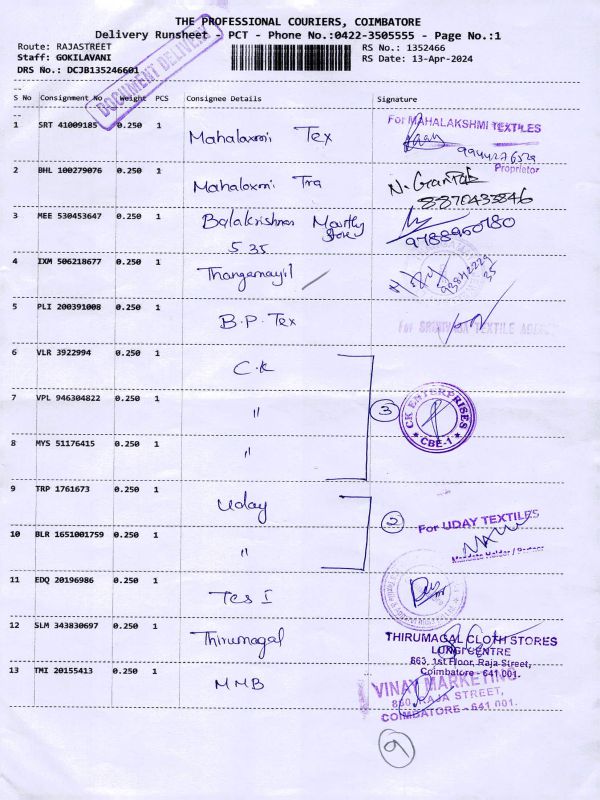 THE PROFESSIONAL COURIERS, COIMBATORE
Delivery Runsheet - PCT - Phone No.:0422-3505555 - Page No.:1
Route: RAJASTREET
Staff: GOKILAVANI
DRS No.: DCJB135246601
RS No.: 1352466
RS Date: 13-Apr-2024
DOCUMENT DELIVERY
S No Consignment No Weight PCS Consignee Details Signature
1 SRT 41009185 0.250 1 Mahalaxmi Tex
For MAHALAKSHMI TEXTILES
Proprietor
2 BHL 100279076 0.250 1 Mahalaxmi Tra
8870433846
3 MEE 530453647 0.250 1 Balakrishnan
Store
535
9788950780
4 IXM 506218677 0.250 1 Thangamayil
5 PLI 200391008 0.250 1 B.P. Tex
For TEXTILE
6 VLR 3922994 0.250 1 C.K
7 VPL 946304822 0.250 1 "
3
CK ENTERPRISES
CBE-1
8 MYS 51176415 0.250 1 "
9 TRP 1761673 0.250 1 Uday
2
For UDAY TEXTILES
10 BLR 1651001759 0.250 1 "
11 EDQ 20196986 0.250 1 Tes I
12 SLM 343830697 0.250 1 Thirumagal
THIRUMAGAL CLOTH STORES
LONGI CENTRE
663, 1st Floor, Raja Street,
Coimbatore - 641 001.
13 TMI 20155413 0.250 1 MMB
VINAY MARKETING
RAJA STREET,
COIMBATORE - 641 001.
9